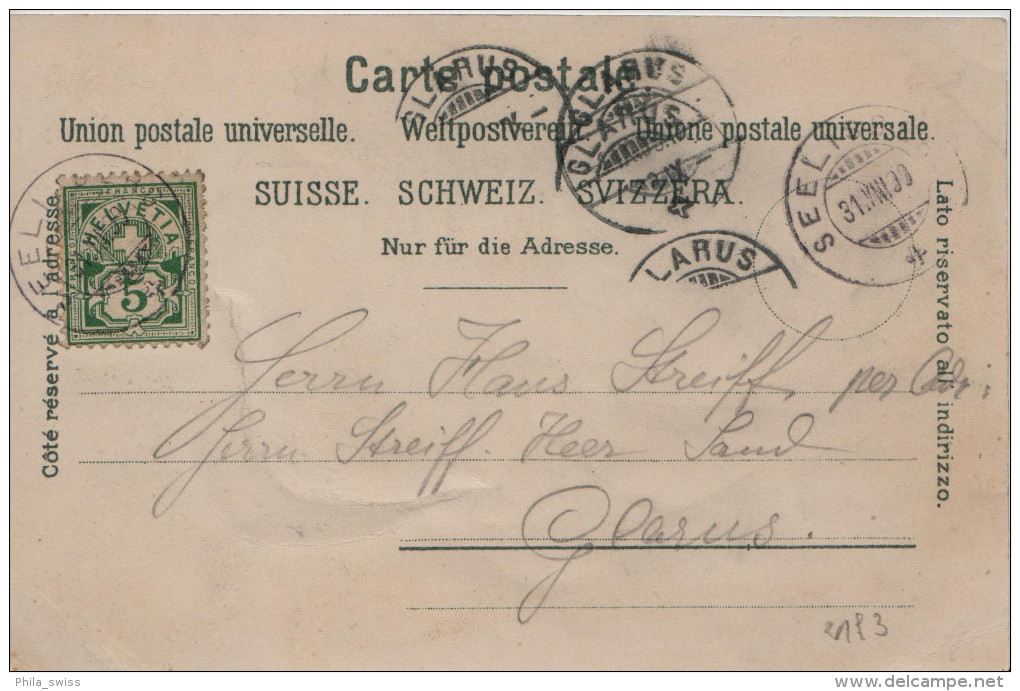 Carte postale
Union postale universelle. Weltpostverein. Unione postale universale.
SUISSE. SCHWEIZ. SVIZZERA.
Nur für die Adresse.
Côté réservé à l'adresse.
Lato riservato all' indirizzo.
FRANCO
HELVETIA
5
GLARUS
GLARUS
GLARUS
IX
LARUS
SEELI
31.VIII.00
EELI
Herrn Hans Streiff, per Adr:
Herrn Streiff-Heer Sand
Glarus.
Phila_swiss
www.delcampe.net